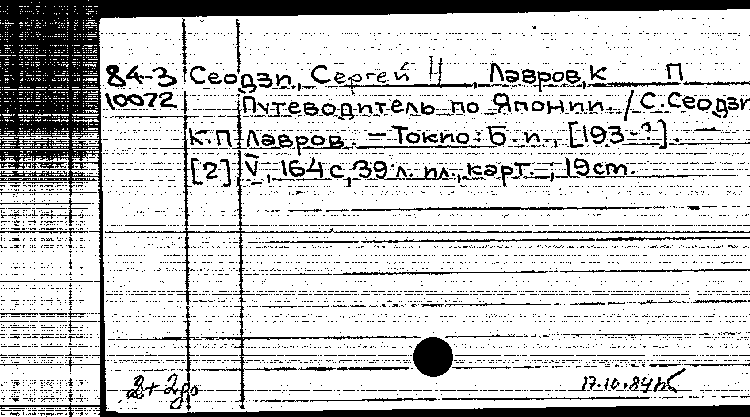 84-3 Сеодзи, Сергей Н , Лавров, К П
10072 Путеводитель по Японии. / С. Сеодзи
К.П Лавров. — Токио: Б. и., [193-?]. —
[2], V, 164 с, 39 л. ил., карт. ; 19 cm.
2 + 2до
17.10.84